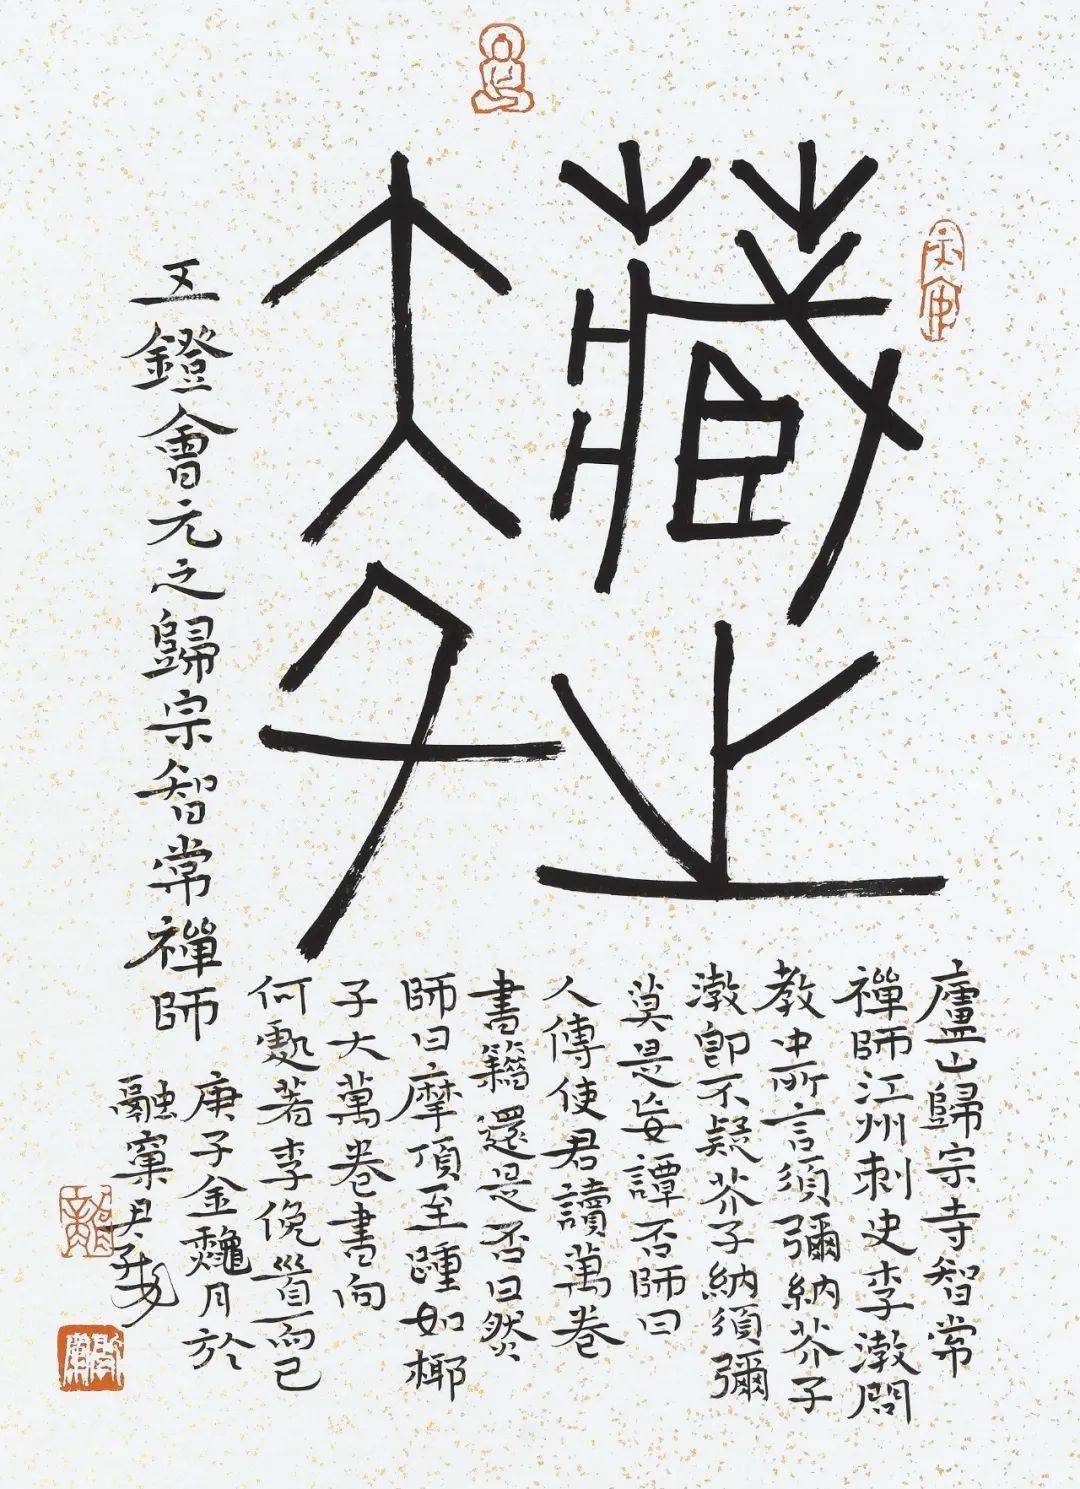 藏之
大千
五鐙會元之歸宗智常禪師
廬山歸宗寺智常
禪師江州刺史李渤問
教中所言須彌納芥子
渤即不疑芥子納須彌
莫是妄譚否師曰
人傳使君讀萬卷
書籍還是否曰然
師曰摩頂至踵如椰
子大萬卷書向
何處著李俛首而已
庚子金龝月於
融窠尹